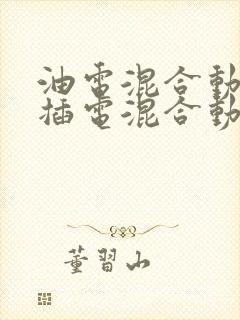 油電混合動
插電混合動
董習山